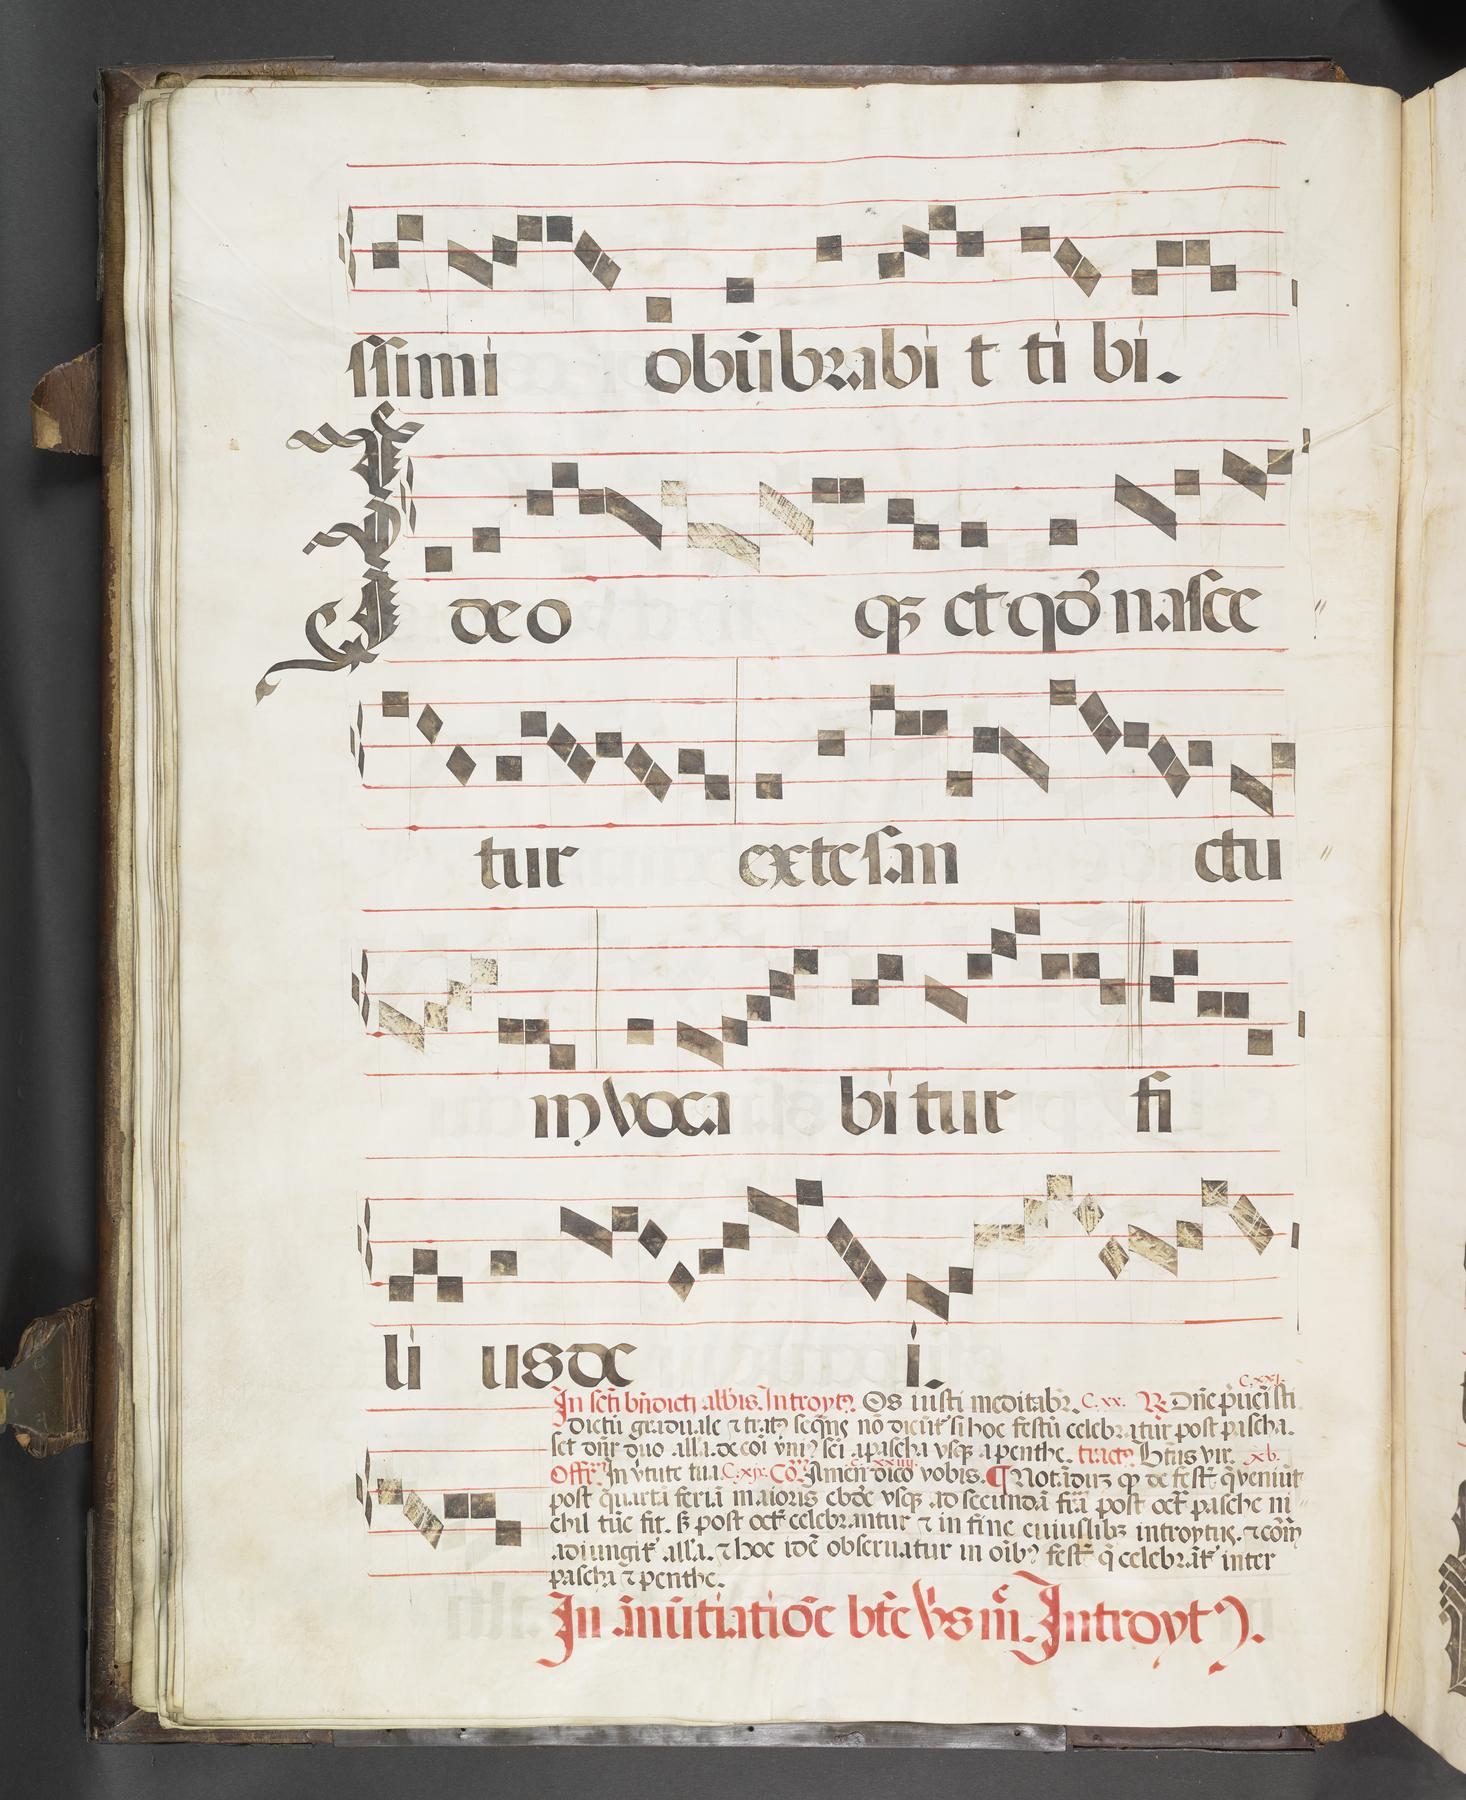 ssimi obūbrabi t ti bi.
Ideo qȝ et qđ nasce
tur exte san ctu
m voca bi tur fi
li us de i.
C.xxi.
In scti bn̄dicti abb̄is. Introytꝰ. Os iusti meditabr̄. C.xx. ℟. Dn̄e p̄uēisti
dictū graduale ⁊ tratꝰ seqn̄s nō dicūtr̄ si hoc festū celebratur post pascha.
set dn̄r duo alla. de cōi vniꝰ sci a pascha vsqȝ a penthe. tractꝰ. Btūs vir. xb.
Offm̄. In v̄tute tua. C.xix. Cō. Amen dico vobis. C.xxiiii. ¶ Notāduȝ qꝫ de fest̄ q̄ veniūt
post quartā feriā maioris ebde vsqȝ ad secundā fiā post oct̄ pasche ni
chil tūc fit. sȝ post oct̄ celebrantur ⁊ in fine cuiuslibȝ introytus. ⁊ cōm̄
adiungit̄ alla. ⁊ hoc idē obseruatur in oībꝰ fest̄ q̄ celebrāt̄ inter
pascha ⁊ penthe.
In ānūtiatiōe btē v̄gs m̄. Introytꝰ.